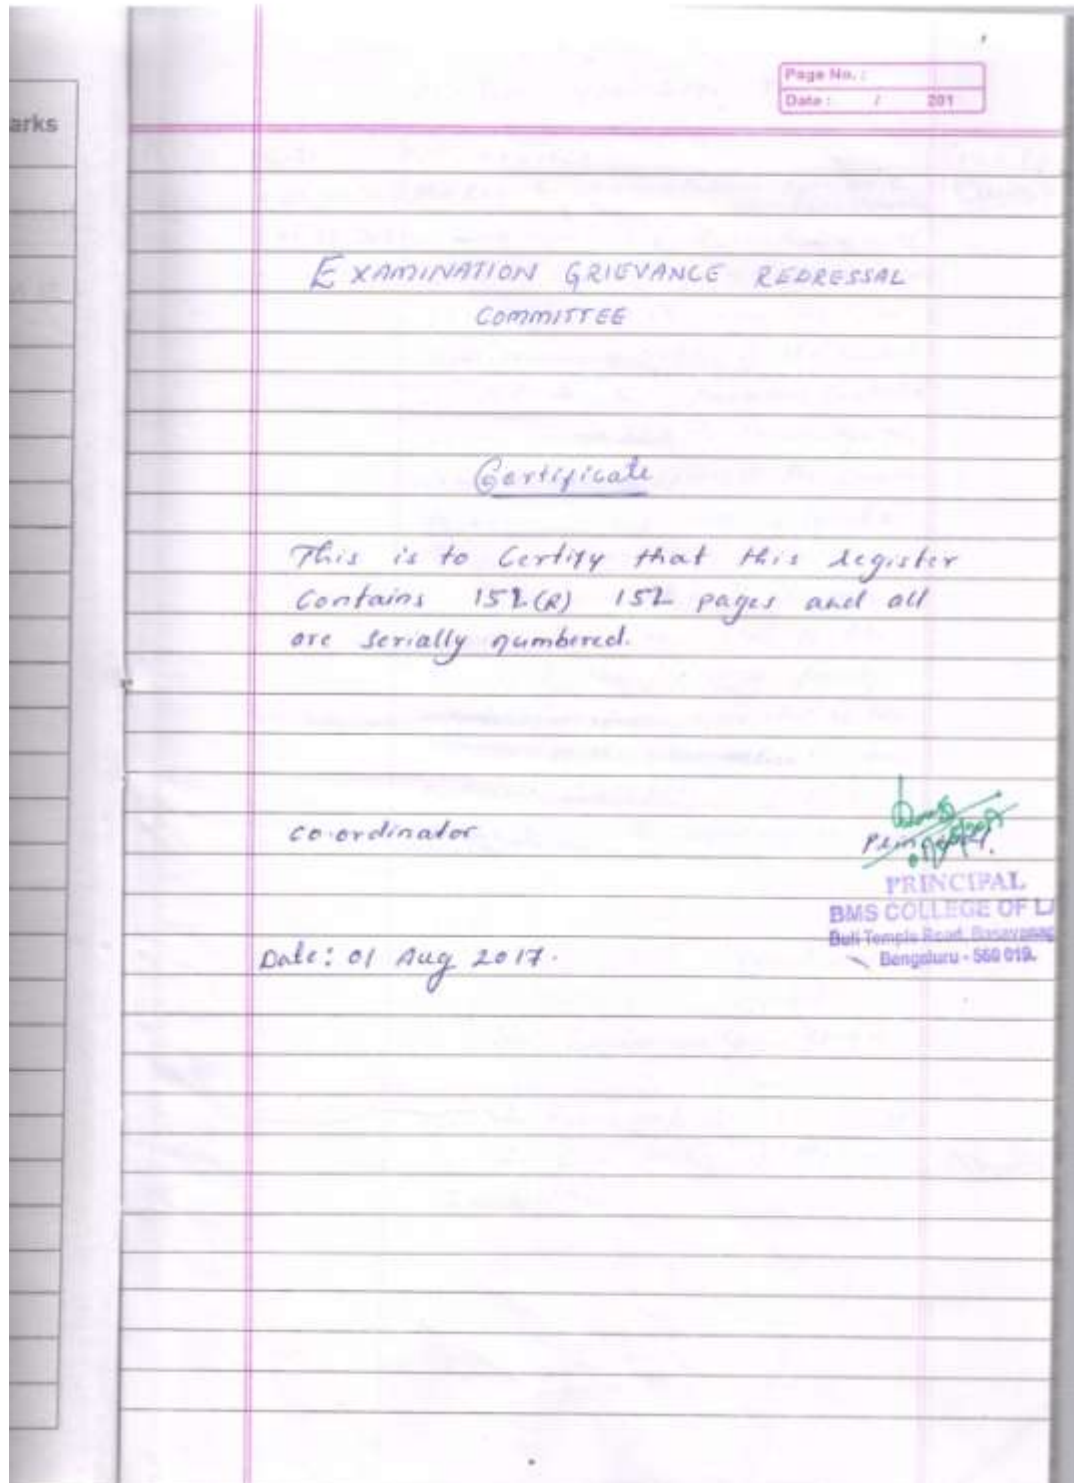 arks
Page No. :
Date : / 201
EXAMINATION GRIEVANCE REDRESSAL
COMMITTEE
Certificate
This is to Certify that this register
Contains 152(R) 152 pages and all
are serially numbered.
co-ordinator
PRINCIPAL
BMS COLLEGE OF LA
Bull Temple Road, Basavanag
Bengaluru - 560 019.
Date: 01 Aug 2017.